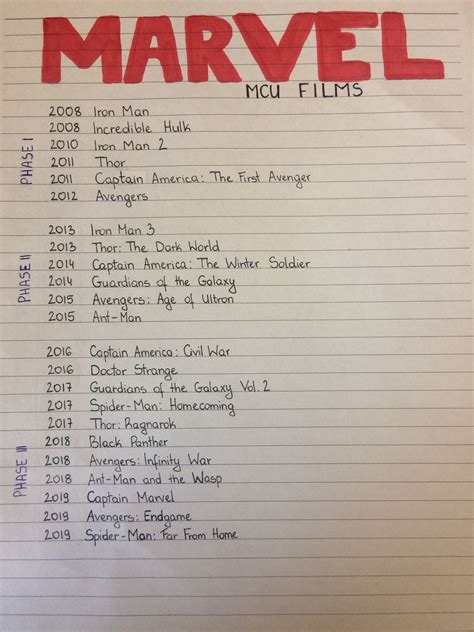 MARVEL
MCU FILMS
PHASE I
2008 Iron Man
2008 Incredible Hulk
2010 Iron Man 2
2011 Thor
2011 Captain America: The First Avenger
2012 Avengers
PHASE II
2013 Iron Man 3
2013 Thor: The Dark World
2014 Captain America: The Winter Soldier
2014 Guardians of the Galaxy
2015 Avengers: Age of Ultron
2015 Ant-Man
PHASE III
2016 Captain America: Civil War
2016 Doctor Strange
2017 Guardians of the Galaxy Vol. 2
2017 Spider-Man: Homecoming
2017 Thor: Ragnarok
2018 Black Panther
2018 Avengers: Infinity War
2018 Ant-Man and the Wasp
2019 Captain Marvel
2019 Avengers: Endgame
2019 Spider-Man: Far From Home